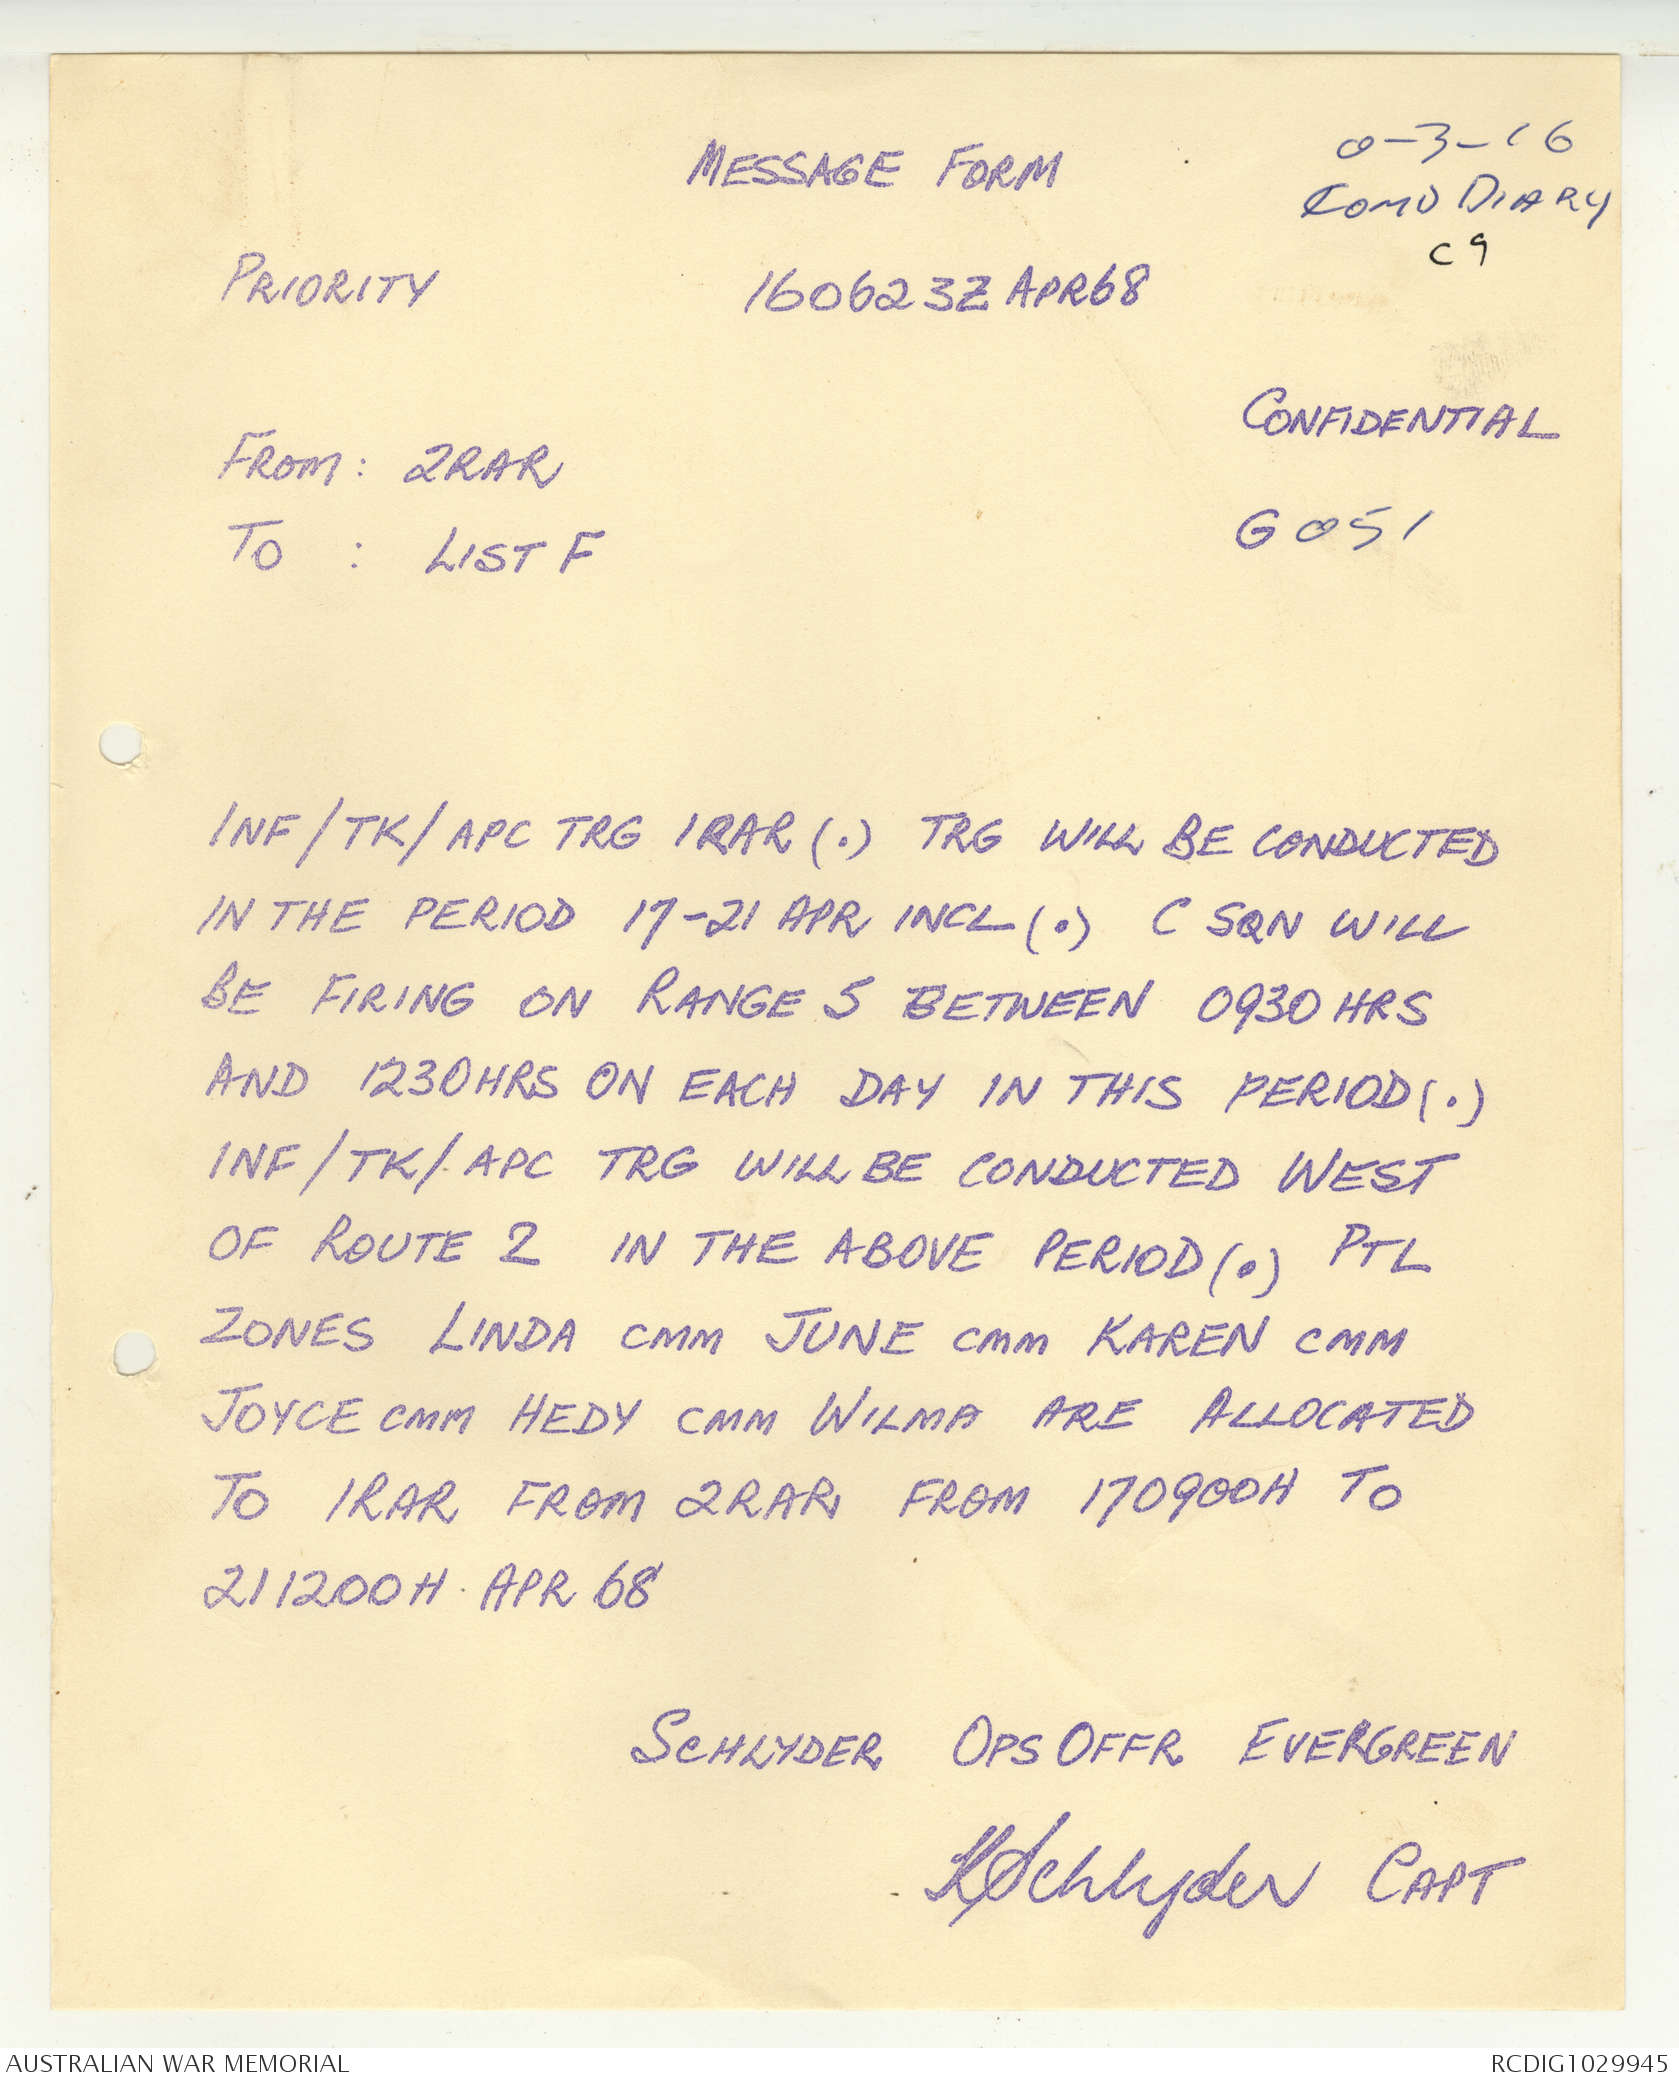 MESSAGE FORM
0-3-16
COMD DIARY
C9
PRIORITY 160623Z APR68
CONFIDENTIAL
FROM: 2RAR
G 051
TO : LIST F
INF/TK/APC TRG 1RAR(.) TRG WILL BE CONDUCTED
IN THE PERIOD 17-21 APR INCL(.) C SQN WILL
BE FIRING ON RANGE 5 BETWEEN 0930 HRS
AND 1230HRS ON EACH DAY IN THIS PERIOD(.)
INF/TK/APC TRG WILL BE CONDUCTED WEST
OF ROUTE 2 IN THE ABOVE PERIOD(.) PTL
ZONES LINDA CMM JUNE CMM KAREN CMM
JOYCE CMM HEDY CMM WILMA ARE ALLOCATED
TO 1RAR FROM 2RAR FROM 170900H TO
211200H APR 68
SCHLYDER OPS OFFR EVERGREEN
KSchlyder CAPT
AUSTRALIAN WAR MEMORIAL RCDIG1029945